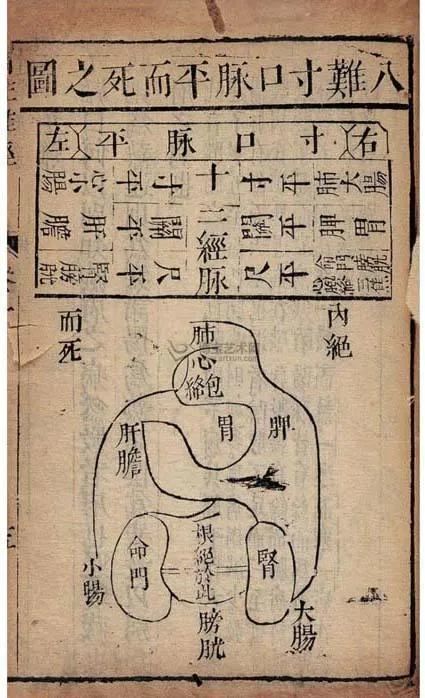 八難寸口脉平而死之圖
右 寸口脉平 左
大腸 胃 三焦
肺 脾 命門
平 平 平
寸 關 尺
十二經脉
寸 關 尺
平 平 平
心 肝 腎
小腸 膽 膀胱
內絕
而死
肺
心包絡
胃
脾
肝膽
腎
根絕於此
命門
大腸
膀胱
小腸